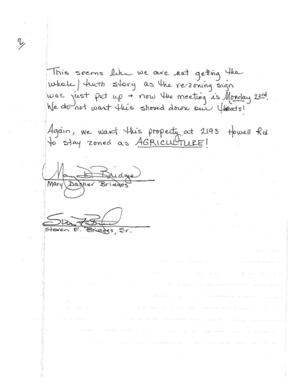 This seems like we are not getting the
whole/truth story as the re-zoning sign
was just put up + now the meeting is Monday 23rd.
We do not want this shoved down our throats!
Again, we want this property at 2193 Howell Rd
to stay zoned as AGRICULTURE!
Mary D Bridges
Mary Dasher Bridges
Steven F. Bridges, Sr.